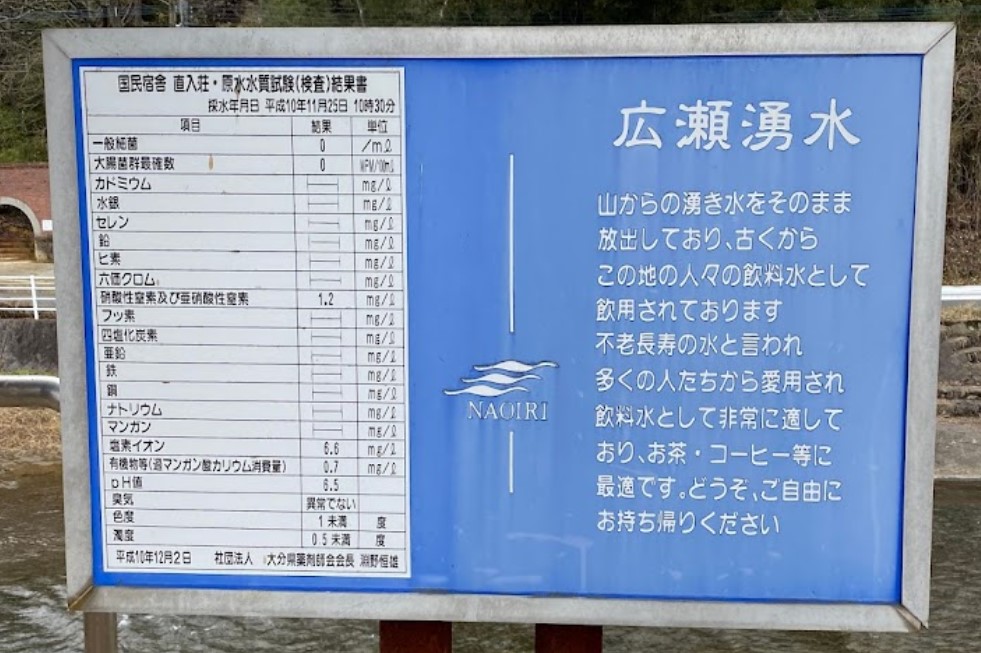 国民宿舎 直入荘・原水水質試験(検査)結果書
採水年月日 平成10年11月25日 10時30分
項目 結果 単位
一般細菌 0 /mℓ
大腸菌群最確数 0 MPN/100ml
カドミウム mg/ℓ
水銀 mg/ℓ
セレン mg/ℓ
鉛 mg/ℓ
ヒ素 mg/ℓ
六価クロム mg/ℓ
硝酸性窒素及び亜硝酸性窒素 1.2 mg/ℓ
フッ素 mg/ℓ
四塩化炭素 mg/ℓ
亜鉛 mg/ℓ
鉄 mg/ℓ
銅 mg/ℓ
ナトリウム mg/ℓ
マンガン mg/ℓ
塩素イオン 6.6 mg/ℓ
有機物等(過マンガン酸カリウム消費量) 0.7 mg/ℓ
pH値 6.5
臭気 異常でない
色度 1未満 度
濁度 0.5未満 度
平成10年12月2日 社団法人 大分県薬剤師会会長 淵野恒雄
NAOIRI
広瀬湧水
山からの湧き水をそのまま
放出しており、古くから
この地の人々の飲料水として
飲用されております
不老長寿の水と言われ
多くの人たちから愛用され
飲料水として非常に適して
おり、お茶・コーヒー等に
最適です。どうぞ、ご自由に
お持ち帰りください